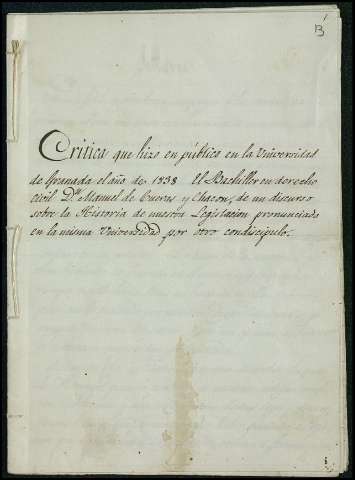 B
Critica que hizo en público en la Universidad
de Granada el año de 1838 el Bachiller en derecho
civil Dn. Manuel de Cueras y Chacon, de un discurso
sobre la Historia de nuestra Legislacion pronunciado
en la misma Universidad por otro condiscipulo.